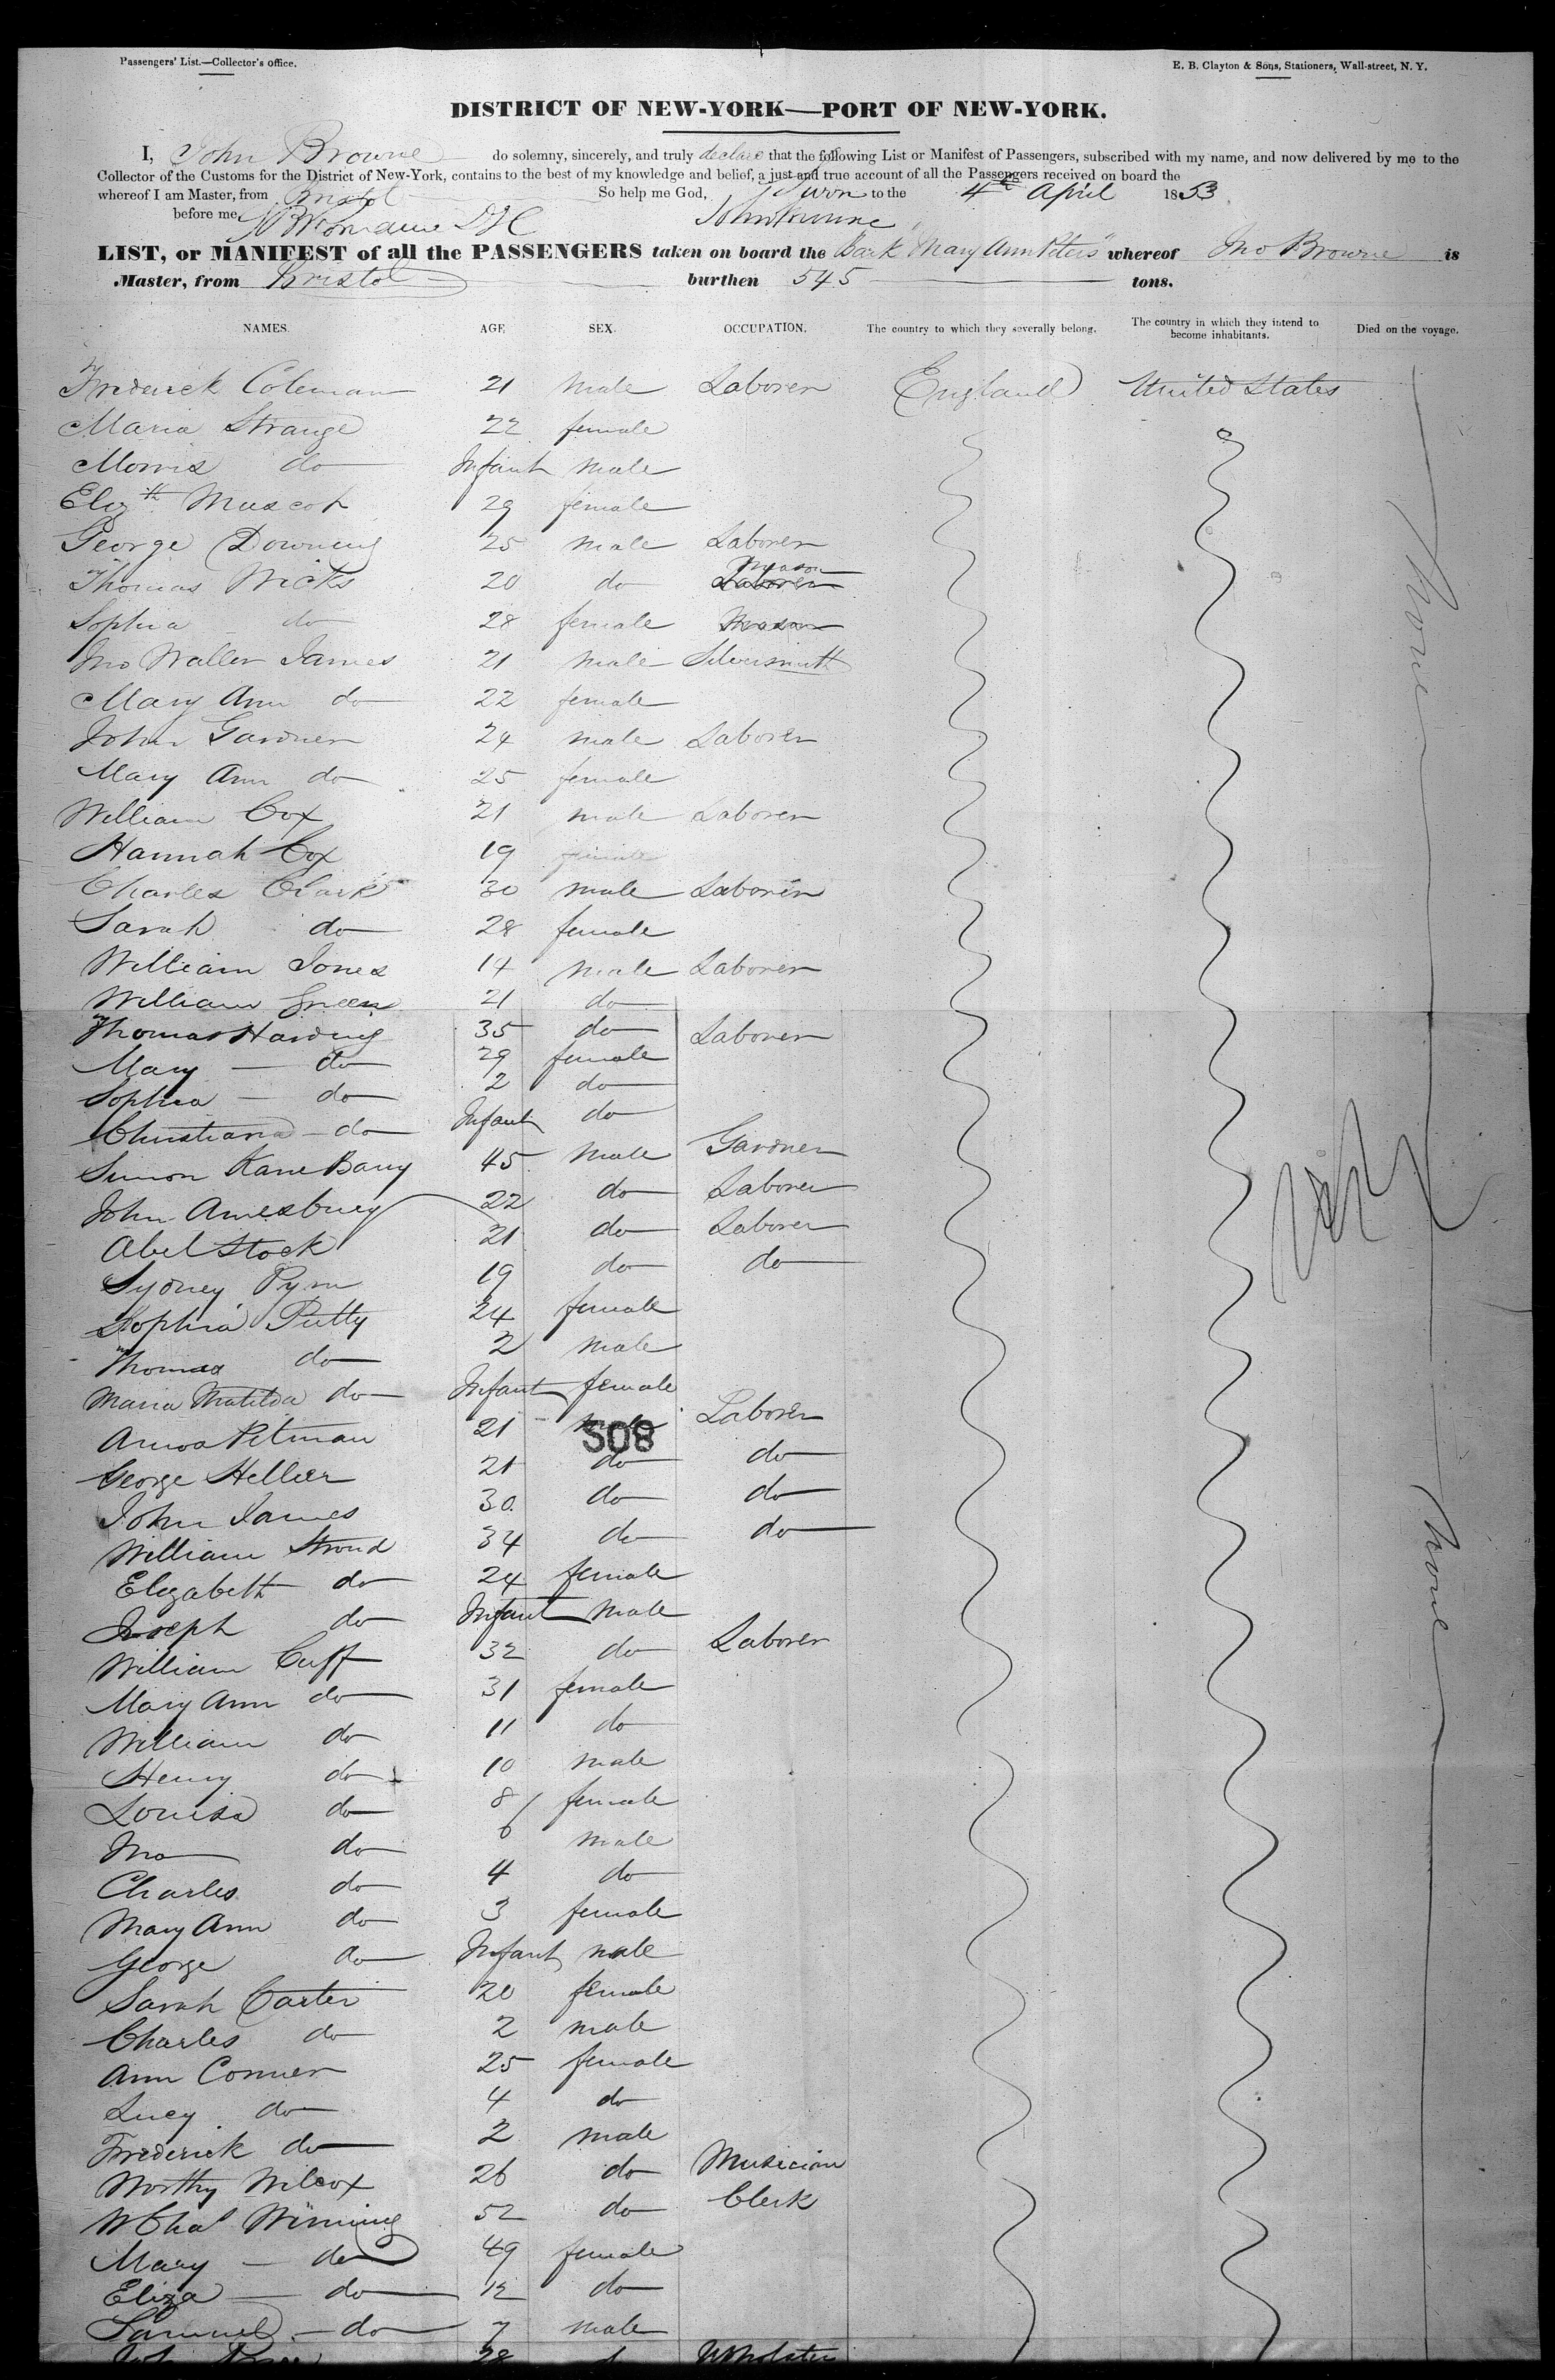 Passengers' List.—Collector's office.
E. B. Clayton & Sons, Stationers, Wall-street, N. Y.
DISTRICT OF NEW-YORK—PORT OF NEW-YORK.
I, John Browne do solemny, sincerely, and truly declare that the following List or Manifest of Passengers, subscribed with my name, and now delivered by me to the
Collector of the Customs for the District of New-York, contains to the best of my knowledge and belief, a just and true account of all the Passengers received on board the
whereof I am Master, from Bristol So help me God, Sworn to the 4th April 1853
before me John Browne
LIST, or MANIFEST of all the PASSENGERS taken on board the Bark "Mary Ann Peters" whereof Jno Browne is
Master, from Bristol burthen 545 tons.
NAMES. AGE SEX. OCCUPATION. The country to which they severally belong. The country in which they intend to become inhabitants. Died on the voyage.
Frederick Coleman 21 male Laborer England United States
Maria Strange 22 female
Morris do Infant male
Elizth Muscot 29 female
George Downing 25 male Laborer
Thomas Wicks 20 do Laborer Mason
Sophia do 28 female Mason
Jno Waller James 21 male Silversmith
Mary Ann do 22 female
John Gardner 24 male Laborer
Mary Ann do 25 female
William Cox 21 male Laborer
Hannah Cox 19 female
Charles Clark 30 male Laborer
Sarah do 28 female
William Jones 14 male Laborer
William Green 21 do
Thomas Harding 35 do Laborer
Mary do 29 female
Sophia do 2 do
Christiana do Infant do
Simon Kane Barry 45 male Gardner
John Amesbury 22 do Laborer
Abel Stock 21 do Laborer
Sydney Pym 19 do do
Sophia Putty 24 female
Thomas do 2 male
Maria Matilda do Infant female
Amos Pitman 21 male Laborer
508
George Hellier 21 do do
John James 30 do do
William Stroud 34 do do
Elizabeth do 24 female
Joseph do Infant male
William Cuff 32 do Laborer
Mary Ann do 31 female
William do 11 do
Henry do 10 male
Louisa do 8 female
Jno do 6 male
Charles do 4 do
Mary Ann do 3 female
George do Infant male
Sarah Carter 20 female
Charles do 2 male
Ann Conner 25 female
Lucy do 4 do
Frederick do 2 male
Worthy Wilcox 26 do Musician
Wm Chas Winning 52 do Clerk
Mary do 49 female
Eliza do 12 do
Samuel do 7 male
28 Upholster
None
None